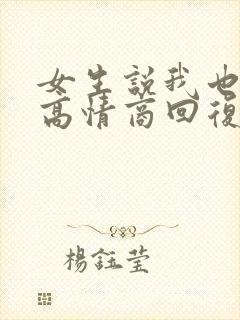 女生說我也
高情商回復
楊鈺瑩